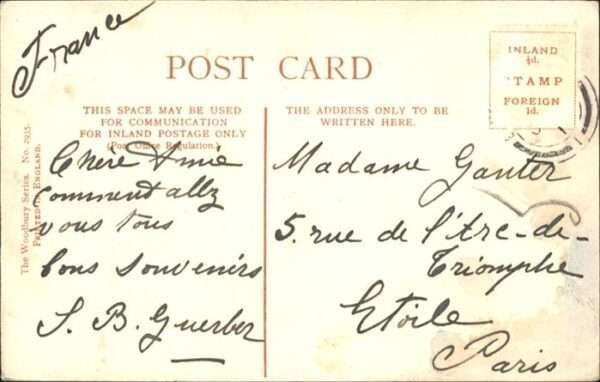 France
POST CARD
INLAND
½d.
STAMP
FOREIGN
1d.
THIS SPACE MAY BE USED
FOR COMMUNICATION
FOR INLAND POSTAGE ONLY
(Post Office Regulation.)
THE ADDRESS ONLY TO BE
WRITTEN HERE.
The Woodbury Series. No. 2935.
PRINTED IN ENGLAND.
Chère Amie
Comment allz
vous tous
bons souvenirs
S. B. Guerber
Madame Ganter
5. rue de l'Arc-de-
Triomphe
Etoile
Paris